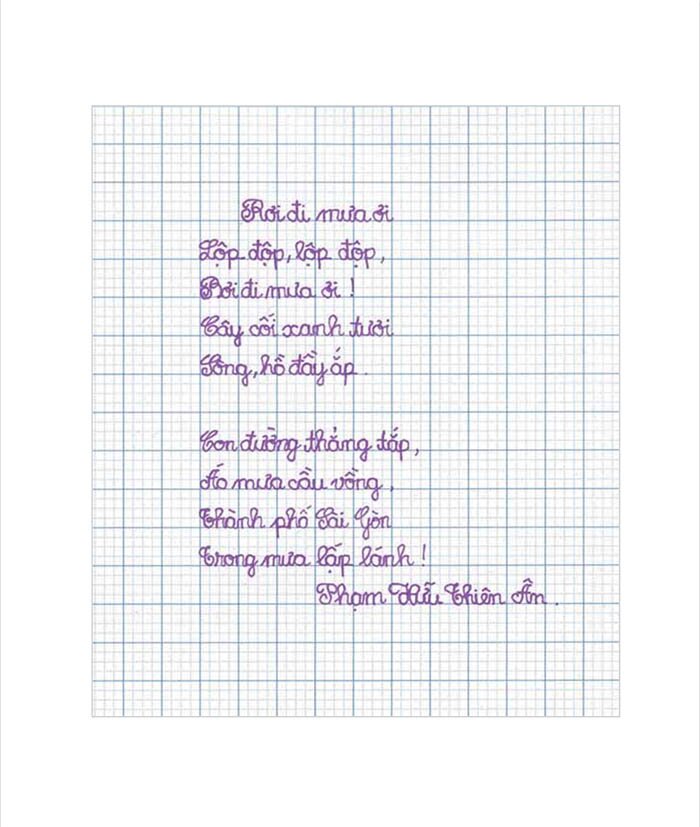 Rơi đi mưa ơi
Lộp độp, lộp độp,
Rơi đi mưa ơi !
Cây cối xanh tươi
Sông, hồ đầy ắp .
Con đường thẳng tắp,
Áo mưa cầu vồng,
Thành phố Sài Gòn
Trong mưa lấp lánh !
Phạm Hữu Thiên Ân .